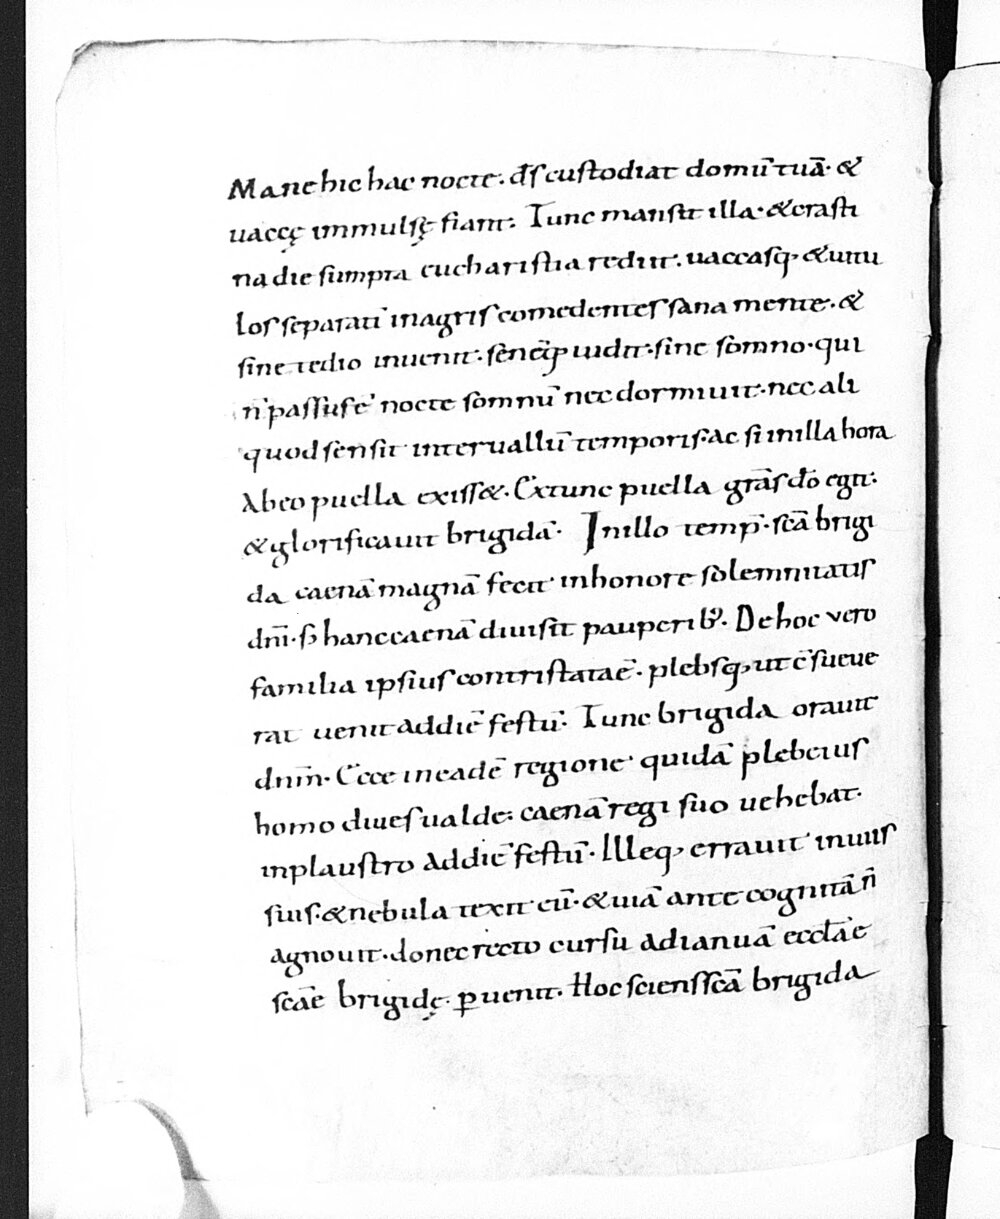 Mane hic hac nocte. d̅s custodiat domū tuā. &
uaccę immulsę fiant. Tunc mansit illa. & crasti
na die sumpta eucharistia rediit. uaccasq; & uitu
los separatī in agris comedentes sana mente. &
sine tedio inuenit. senēq; uidit. sine somno. qui
n̄ passus ē nocte somnū nec dormiuit. nec ali
quod sensit interuallū temporis. ac si in illa hora
Ab eo puella exiss&. Ex tunc puella grās dō egit.
& glorificauit brigidā. In illo temp̄. scā brigi
da caenā magnā fecit in honore solemnitatis
dn̄i. s; hanc caenā diuisit pauperib;. De hoc vero
familia ipsius contristata ē. plebsq; ut c̄sueue
rat uenit ad diē festū. Tunc brigida orauit
dnm̄. Ecce in eadē regione quidā plebeius
homo diues ualde. caenā regi suo uehebat.
in plaustro ad diē festū. Illeq; errauit in uiis
suis. & nebula texit eū. & uiā ante cognitā n̄
agnouit. donec recto cursu ad ianuā eccłae
scāe brigidę. ꝑuenit. Hoc sciens scā brigida